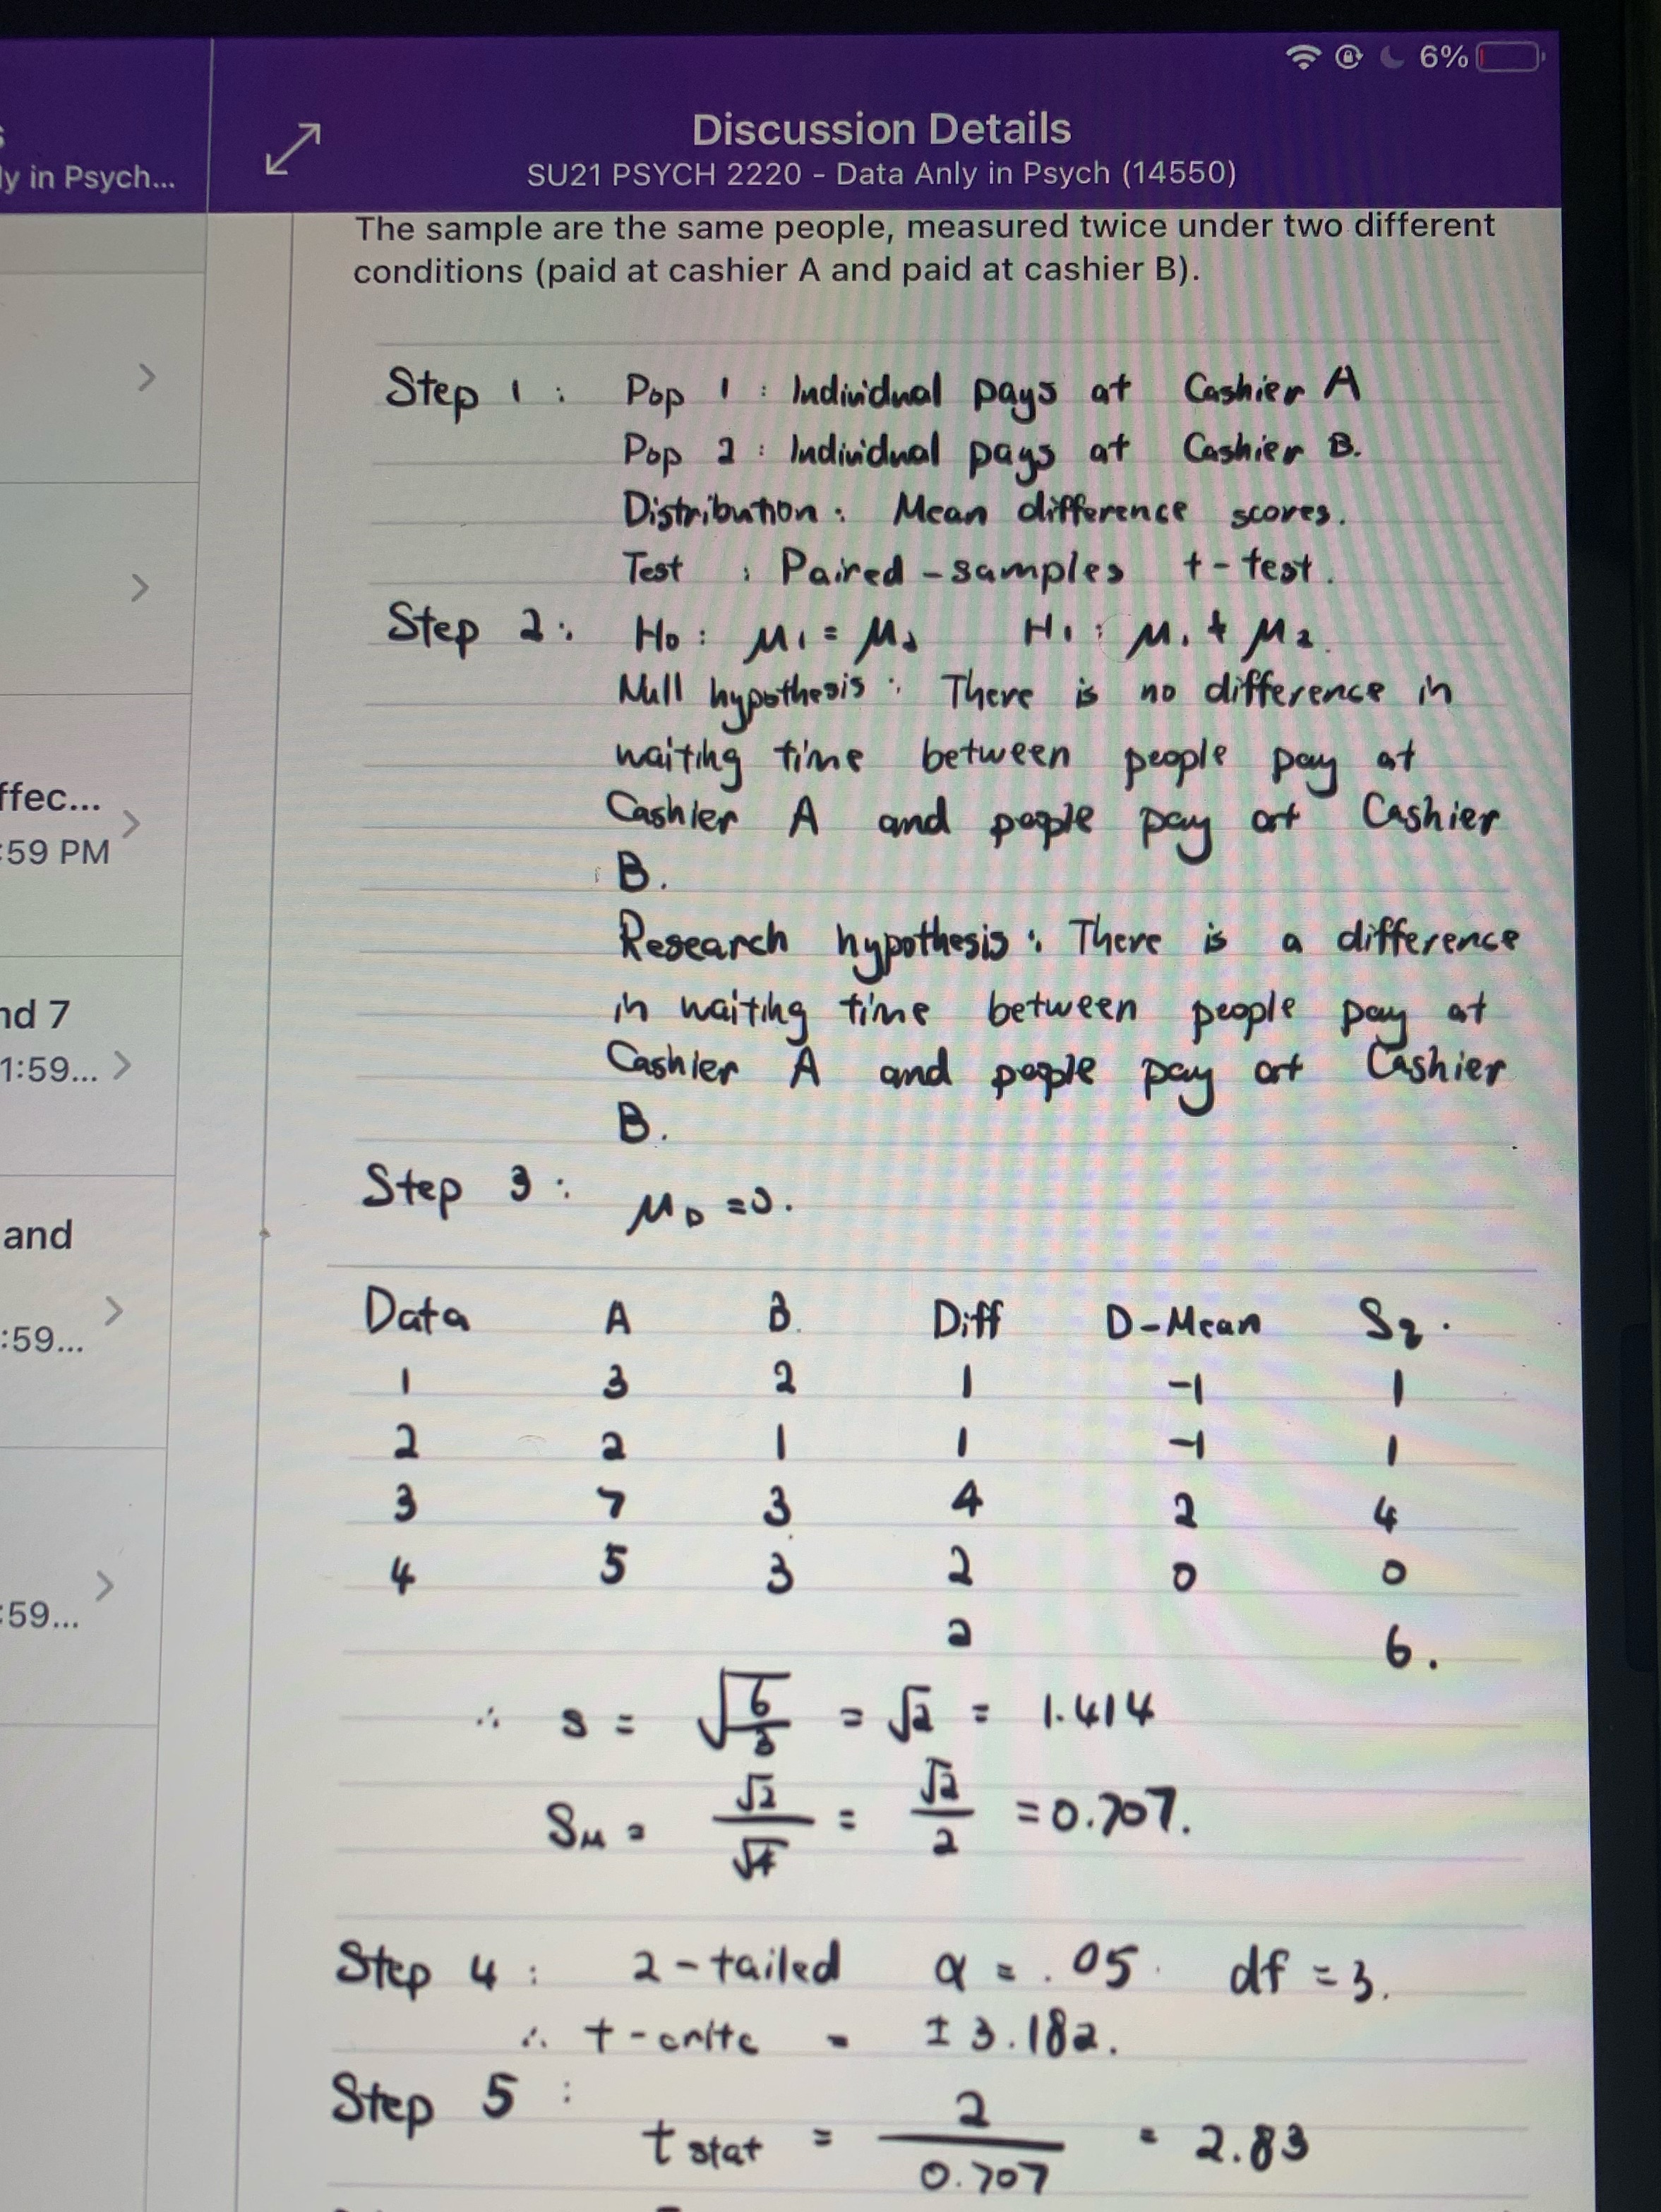 6%
Discussion Details
SU21 PSYCH 2220 - Data Anly in Psych (14550)
s
ly in Psych...
ffec...
:59 PM
nd 7
1:59...
and
:59...
:59...
The sample are the same people, measured twice under two different
conditions (paid at cashier A and paid at cashier B).
Step 1 : Pop 1 : Individual pays at Cashier A
Pop 2 : Individual pays at Cashier B.
Distribution : Mean difference scores.
Test : Paired-samples t-test.
Step 2 : H₀ : μ₁ = μ₂ H₁ : μ₁ ≠ μ₂.
Null hypothesis : There is no difference in
waiting time between people pay at
Cashier A and people pay at Cashier
B.
Research hypothesis : There is a difference
in waiting time between people pay at
Cashier A and people pay at Cashier
B.
Step 3 : μD = 0.
Data A B. Diff D-Mean S2.
1 3 2 1 -1 1
2 2 1 1 -1 1
3 7 3 4 2 4
4 5 3 2 0 0
2 6.
∴ s = √(6/3) = √2 = 1.414
SM = √2/√4 = √2/2 = 0.707.
Step 4 : 2-tailed α = .05. df = 3.
∴ t-critc = ±3.182.
Step 5 :
t stat = 2/0.707 = 2.83